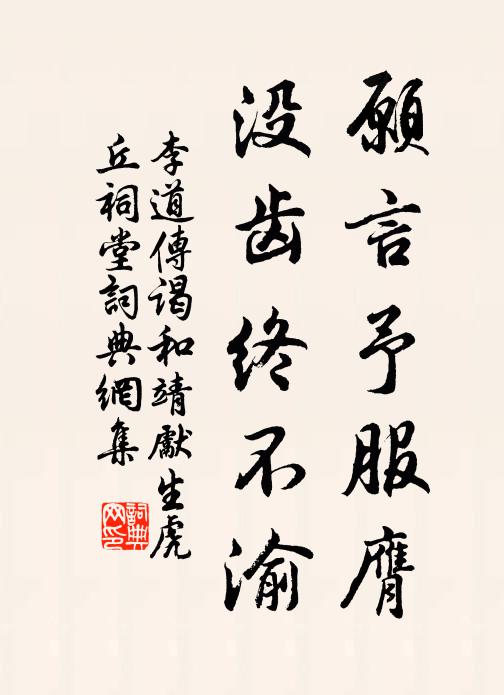 願言予服膺
没齿终不渝
李道傳謁和靖獻生虎
丘祠堂詞典網集
詞典
网印